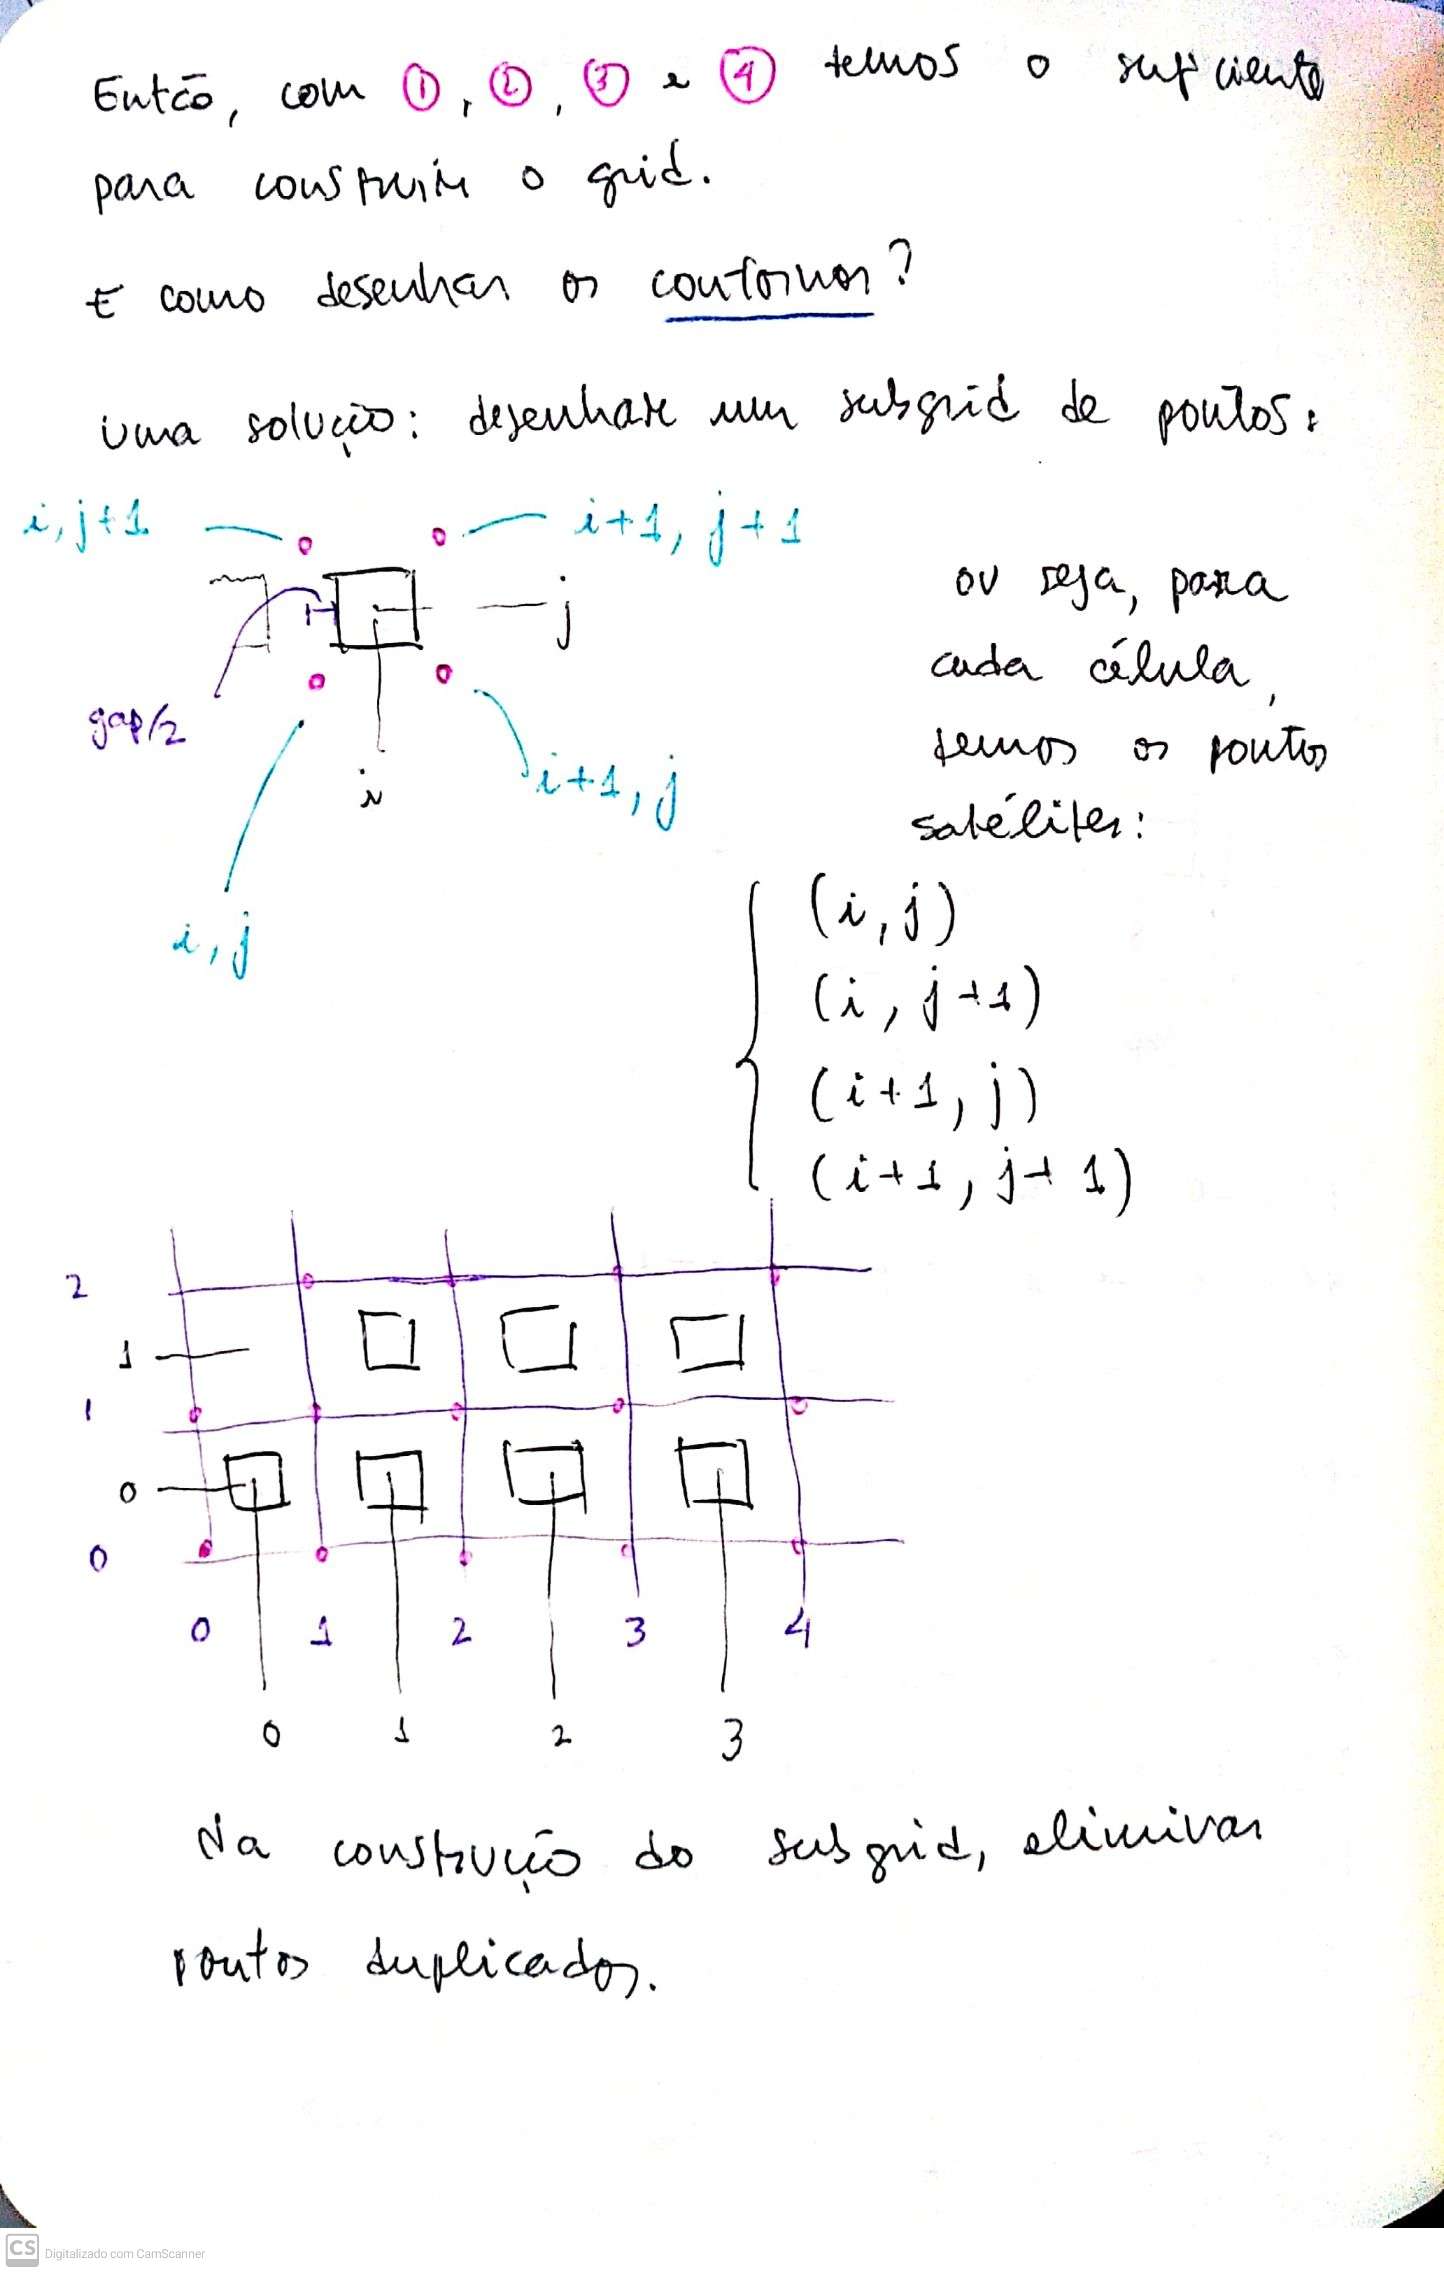 Então, com ①, ②, ③ e ④ temos o suficiente
para construir o grid.
E como desenhar os contornos?
Uma solução: desenhare um subgrid de pontos:
i, j+1
i+1, j+1
j
gap/2
i
i+1, j
i, j
ou seja, para
cada célula,
temos os pontos
satélites:
(i, j)
(i, j+1)
(i+1, j)
(i+1, j+1)
2
1
1
0
0
0 1 2 3 4
0 1 2 3
Na construção do subgrid, eliminar
pontos duplicados.
CS Digitalizado com CamScanner